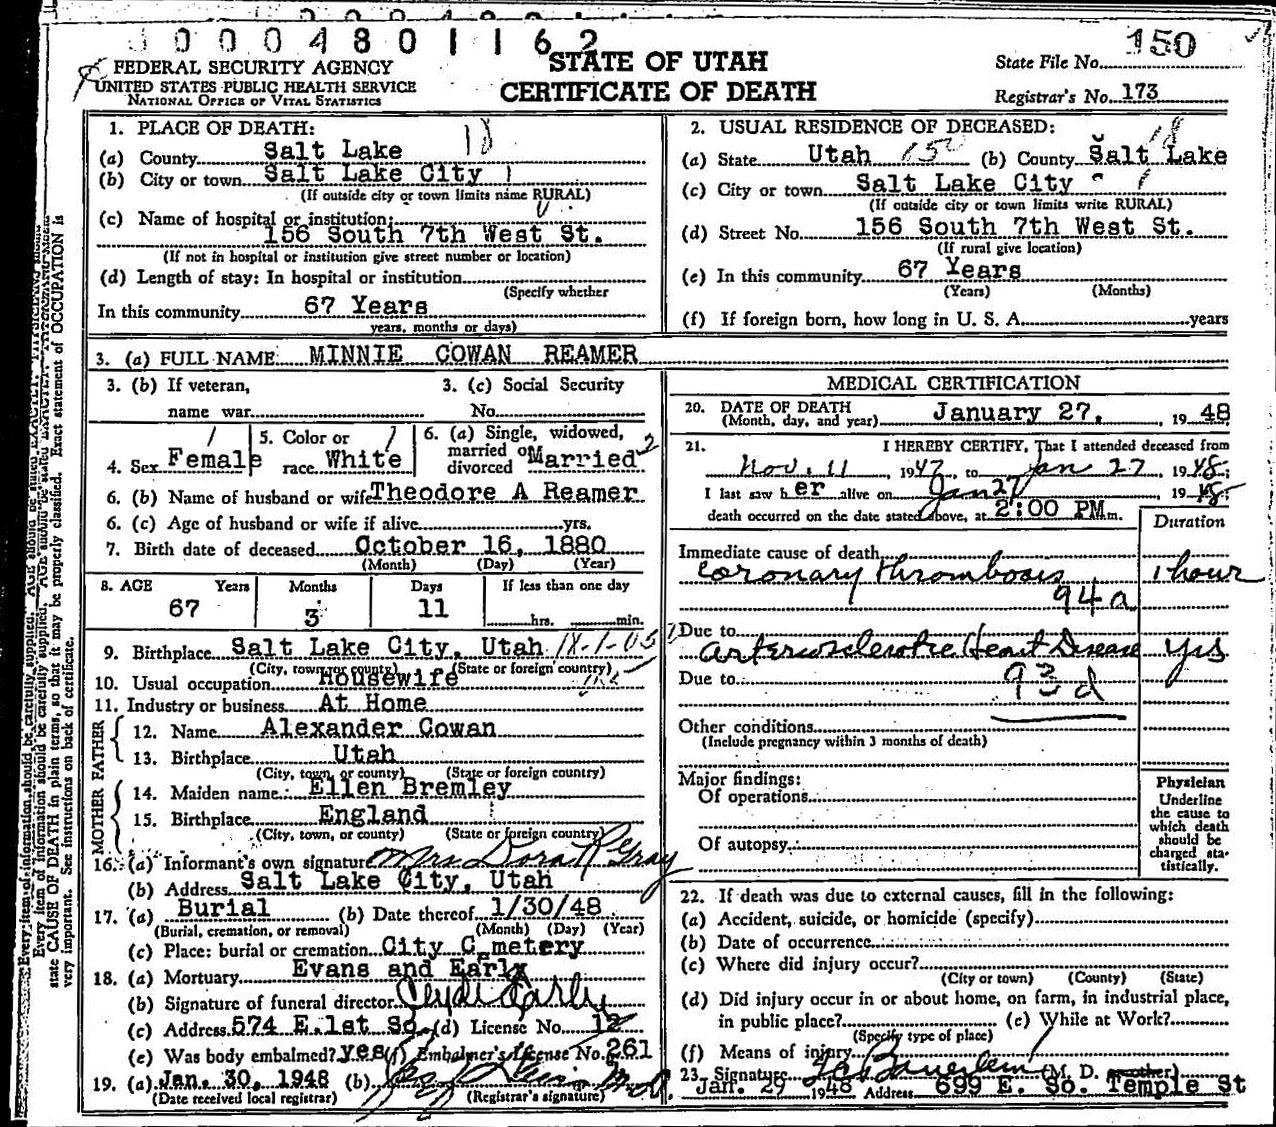 0004801162
STATE OF UTAH
CERTIFICATE OF DEATH
FEDERAL SECURITY AGENCY
UNITED STATES PUBLIC HEALTH SERVICE
NATIONAL OFFICE OF VITAL STATISTICS
State File No. 150
Registrar's No. 173
1. PLACE OF DEATH: 18
(a) County Salt Lake
(b) City or town Salt Lake City 1
(If outside city or town limits name RURAL)
(c) Name of hospital or institution:
156 South 7th West St.
(If not in hospital or institution give street number or location)
(d) Length of stay: In hospital or institution
(Specify whether
In this community 67 Years
years, months or days)
2. USUAL RESIDENCE OF DECEASED: 18
(a) State Utah 150 (b) County Salt Lake
(c) City or town Salt Lake City 1
(If outside city or town limits write RURAL)
(d) Street No. 156 South 7th West St.
(If rural give location)
(e) In this community 67 Years
(Years) (Months)
(f) If foreign born, how long in U. S. A. years
3. (a) FULL NAME MINNIE COWAN REAMER
3. (b) If veteran, name war
3. (c) Social Security No.
4. Sex Female 1
5. Color or race White 1
6. (a) Single, widowed, married or divorced Married 2
6. (b) Name of husband or wife Theodore A Reamer
6. (c) Age of husband or wife if alive yrs.
7. Birth date of deceased October 16, 1880
(Month) (Day) (Year)
8. AGE Years Months Days If less than one day
67 3 11 hrs. min.
9. Birthplace Salt Lake City, Utah
(City, town, or county) (State or foreign country)
10. Usual occupation Housewife
11. Industry or business At Home
FATHER
12. Name Alexander Cowan
13. Birthplace Utah
(City, town, or county) (State or foreign country)
MOTHER
14. Maiden name Ellen Bremley
15. Birthplace England
(City, town, or county) (State or foreign country)
16. (a) Informant's own signature Mrs Dora R Gray
(b) Address Salt Lake City, Utah
17. (a) Burial (b) Date thereof 1/30/48
(Burial, cremation, or removal) (Month) (Day) (Year)
(c) Place: burial or cremation City C metery
18. (a) Mortuary Evans and Early
(b) Signature of funeral director Clyde Early
(c) Address 574 E. 1st So. (d) License No. 12
(e) Was body embalmed? yes (f) Embalmer's License No. 261
19. (a) Jan. 30, 1948 (b)
(Date received local registrar) (Registrar's signature)
MEDICAL CERTIFICATION
20. DATE OF DEATH January 27, 1948
(Month, day, and year)
21. I HEREBY CERTIFY, That I attended deceased from
Nov. 11, 1947, to Jan 27, 1948;
I last saw her alive on Jan 27, 1948;
death occurred on the date stated above, at 2:00 PM m.
Duration
Immediate cause of death
coronary thrombosis 1 hour
94a
Due to
Arteriosclerotic Heart Disease yrs
Due to 93d
Other conditions
(Include pregnancy within 3 months of death)
Major findings:
Of operations
Of autopsy
Physician
Underline
the cause to
which death
should be
charged sta-
tistically.
22. If death was due to external causes, fill in the following:
(a) Accident, suicide, or homicide (specify)
(b) Date of occurrence
(c) Where did injury occur?
(City or town) (County) (State)
(d) Did injury occur in or about home, on farm, in industrial place,
in public place? (e) While at Work?
(Specify type of place)
(f) Means of injury
23. Signature (M. D. or other)
Jan. 29 1948 Address 699 E. So. Temple St
Every item of information should be carefully supplied. AGE should be stated EXACTLY.
state CAUSE OF DEATH in plain terms, so that it may be properly classified. Exact statement of OCCUPATION is
very important. See instructions on back of certificate.